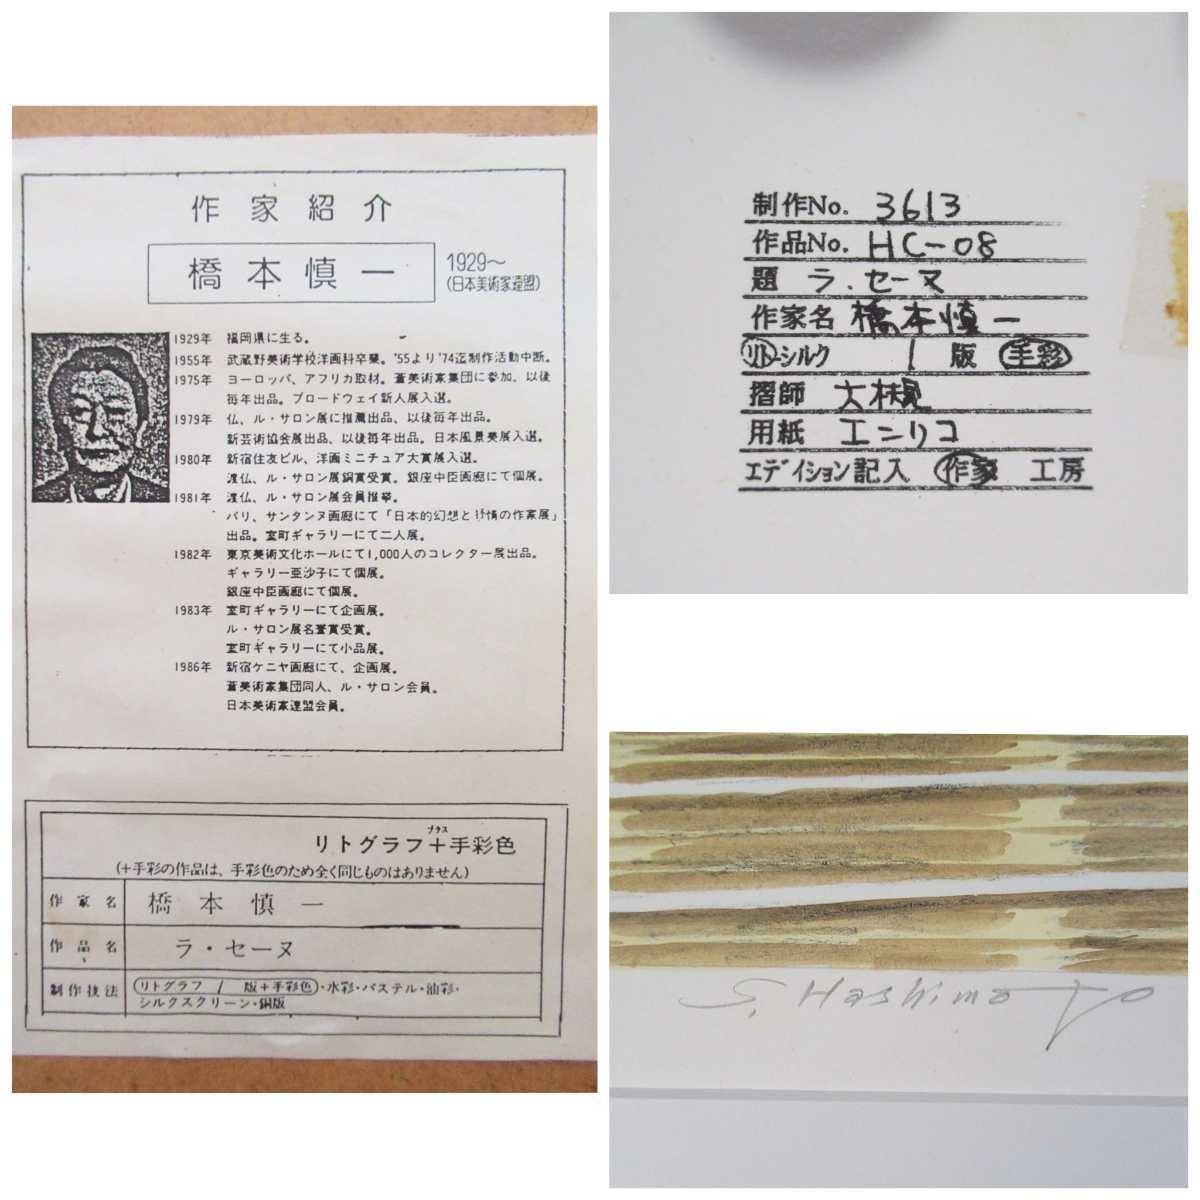 作家紹介
橋本慎一
1929〜
(日本美術家連盟)
1929年 福岡県に生る。
1955年 武蔵野美術学校洋画科卒業。'55より'74迄制作活動中断。
1975年 ヨーロッパ、アフリカ取材。蒼美術家集団に参加、以後
毎年出品。ブロードウェイ新人展入選。
1979年 仏、ル・サロン展に推薦出品、以後毎年出品。
新芸術協会展出品、以後毎年出品。日本風景美展入選。
1980年 新宿住友ビル、洋画ミニチュア大賞展入選。
渡仏、ル・サロン展銅賞受賞。銀座中臣画廊にて個展。
1981年 渡仏、ル・サロン展会員推挙。
パリ、サンタンヌ画廊にて「日本的幻想と抒情の作家展」
出品。室町ギャラリーにて二人展。
1982年 東京美術文化ホールにて1,000人のコレクター展出品。
ギャラリー亜沙子にて個展。
銀座中臣画廊にて個展。
1983年 室町ギャラリーにて企画展。
ル・サロン展名誉賞受賞。
室町ギャラリーにて小品展。
1986年 新宿ケニヤ画廊にて、企画展。
蒼美術家集団同人、ル・サロン会員。
日本美術家連盟会員。
プラス
リトグラフ+手彩色
(+手彩の作品は、手彩色のため全く同じものはありません)
作家名 橋本慎一
作品名 ラ・セーヌ
制作技法 リトグラフ 1 版+手彩色・水彩・パステル・油彩・
シルクスクリーン・銅版
制作No. 3613
作品No. HC-08
題 ラ・セーヌ
作家名 橋本慎一
リト-シルク 1 版 手彩
摺師 大槻
用紙 エンリコ
エディション記入 作家 工房
S. Hashimoto